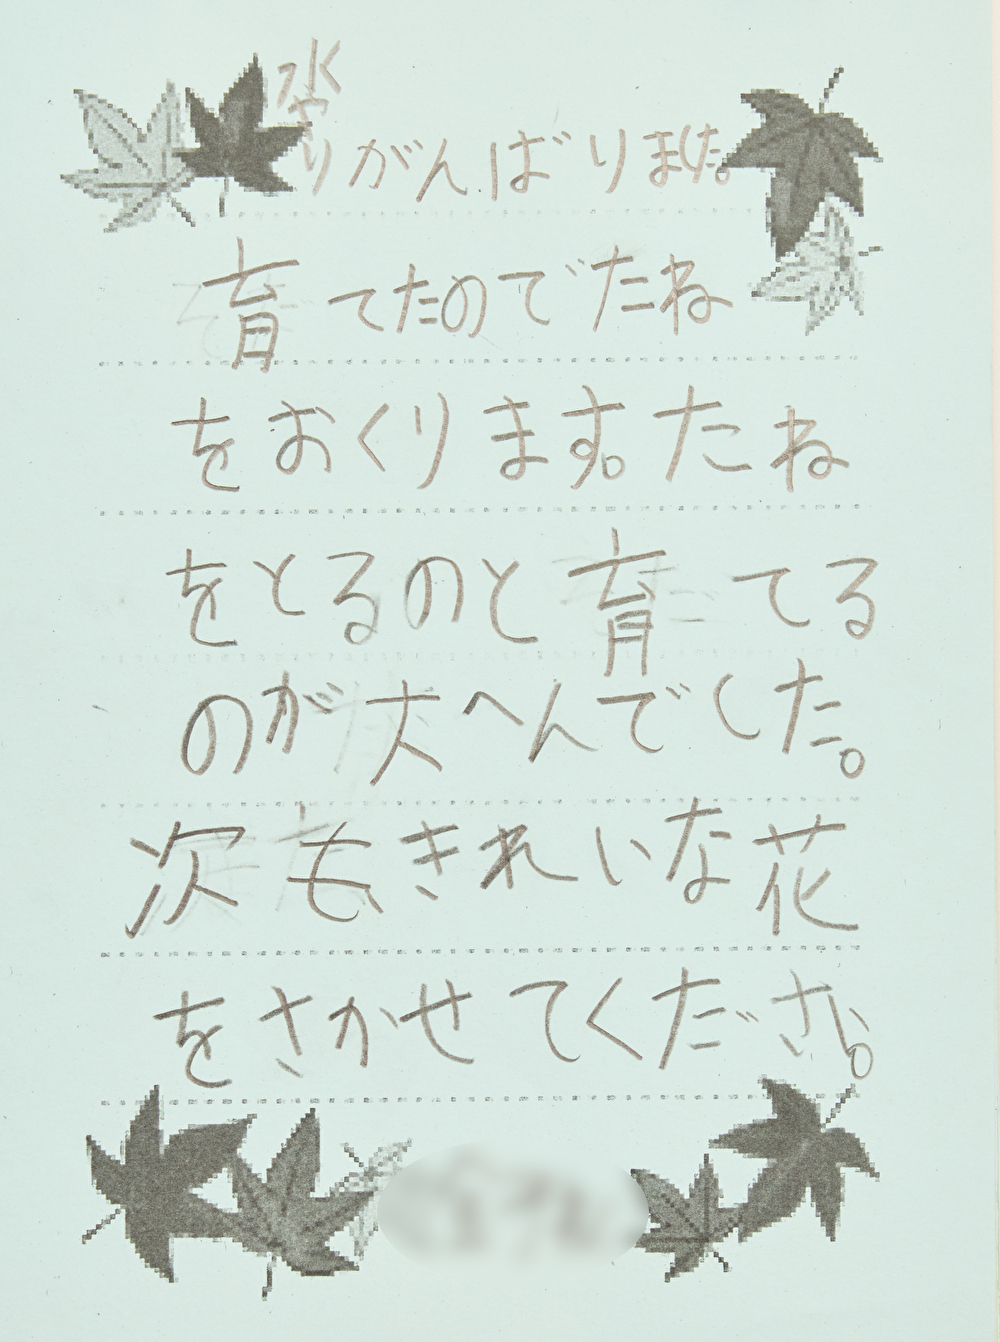 水やりがんばりました。
育てたのでたね
をおくります。たね
をとるのと育てる
のが大へんでした。
次もきれいな花
をさかせてください。